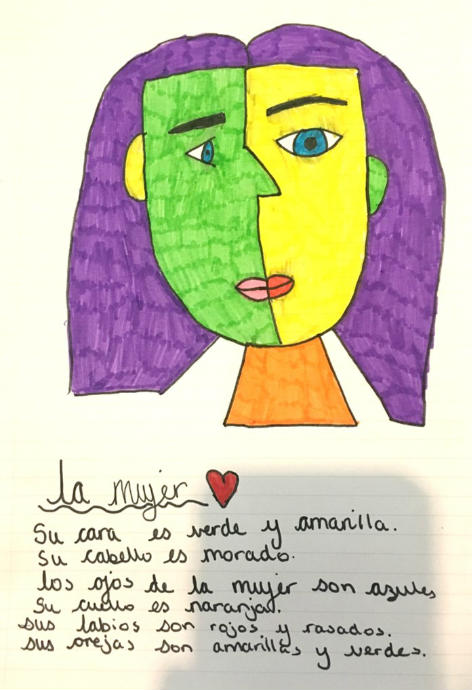 la mujer
Su cara es verde y amarilla.
Su cabello es morado.
los ojos de la mujer son azules
Su cuello es naranja.
sus labios son rojos y rosados.
sus orejas son amarillas y verdes.